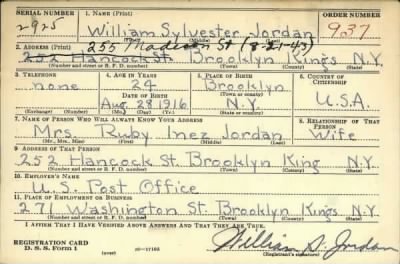 SERIAL NUMBER 1. NAME (Print) ORDER NUMBER
2925 William Sylvester Jordan 937
255 Madison St (8-21-43)
2. ADDRESS (Print)
252 Hancock St. Brooklyn Kings N.Y.
(Number and street or R. F. D. number) (Town) (County) (State)
3. TELEPHONE 4. AGE IN YEARS 5. PLACE OF BIRTH 6. COUNTRY OF CITIZENSHIP
none 24 Brooklyn
DATE OF BIRTH (Town or county)
Aug. 28 1916 N.Y. U.S.A.
(Exchange) (Number) (Mo.) (Day) (Yr.) (State or country)
7. NAME OF PERSON WHO WILL ALWAYS KNOW YOUR ADDRESS 8. RELATIONSHIP OF THAT PERSON
Mrs. Ruby Inez Jordan Wife
(Mr., Mrs., Miss) (First) (Middle) (Last)
9. ADDRESS OF THAT PERSON
252 Hancock St. Brooklyn King N.Y.
(Number and street or R. F. D. number) (Town) (County) (State)
10. EMPLOYER'S NAME
U.S. Post Office
11. PLACE OF EMPLOYMENT OR BUSINESS
271 Washington St. Brooklyn Kings N.Y.
(Number and street or R. F. D. number) (Town) (County) (State)
I AFFIRM THAT I HAVE VERIFIED ABOVE ANSWERS AND THAT THEY ARE TRUE.
REGISTRATION CARD
D. S. S. Form 1 (over) 16—17105 William S. Jordan
(Registrant's signature)